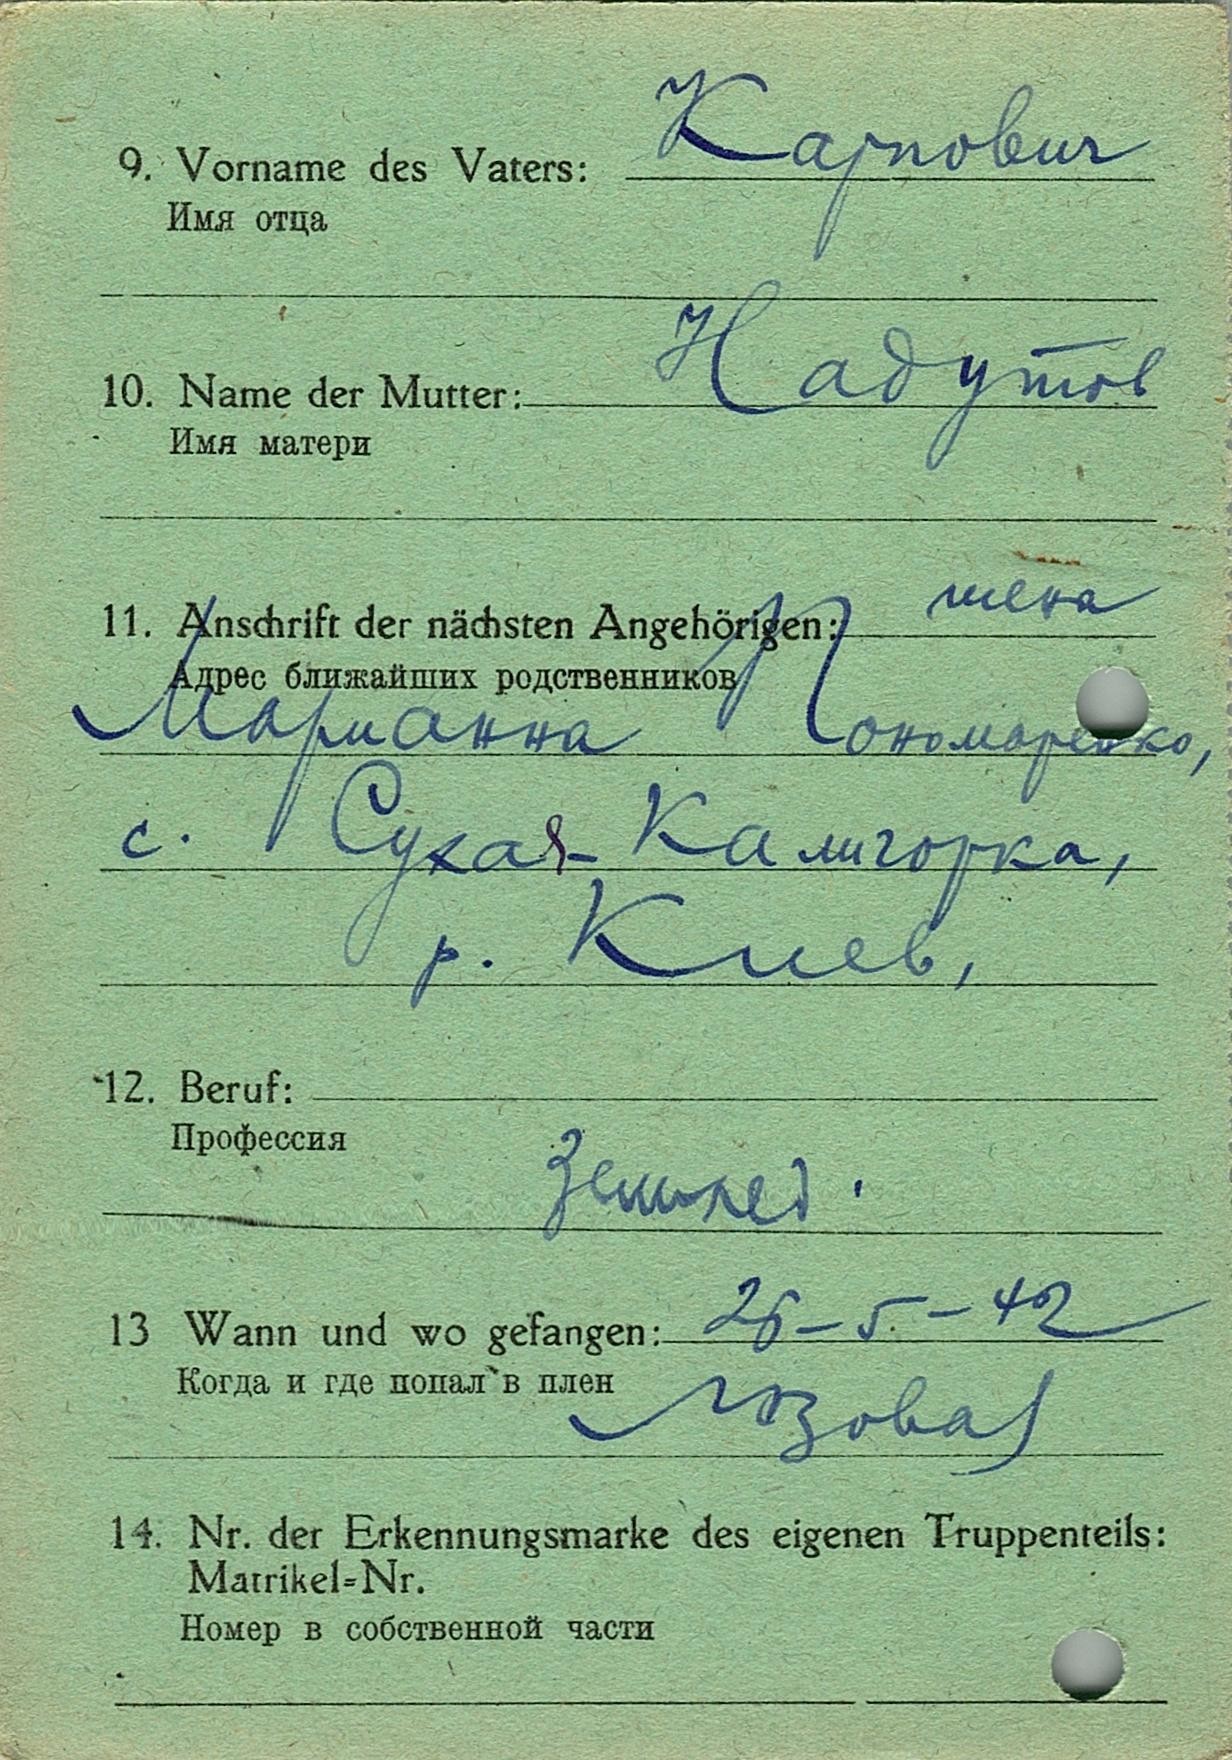 9. Vorname des Vaters: Карпович
Имя отца
10. Name der Mutter: Надутов
Имя матери
11. Anschrift der nächsten Angehörigen: жена
Адрес ближайших родственников
Марианна Пономаренко,
с. Сухая-Калигорка,
р. Киев,
12. Beruf:
Профессия
Землед.
13 Wann und wo gefangen: 26-5-42
Когда и где попал в плен Лозовая
14. Nr. der Erkennungsmarke des eigenen Truppenteils:
Matrikel=Nr.
Номер в собственной части